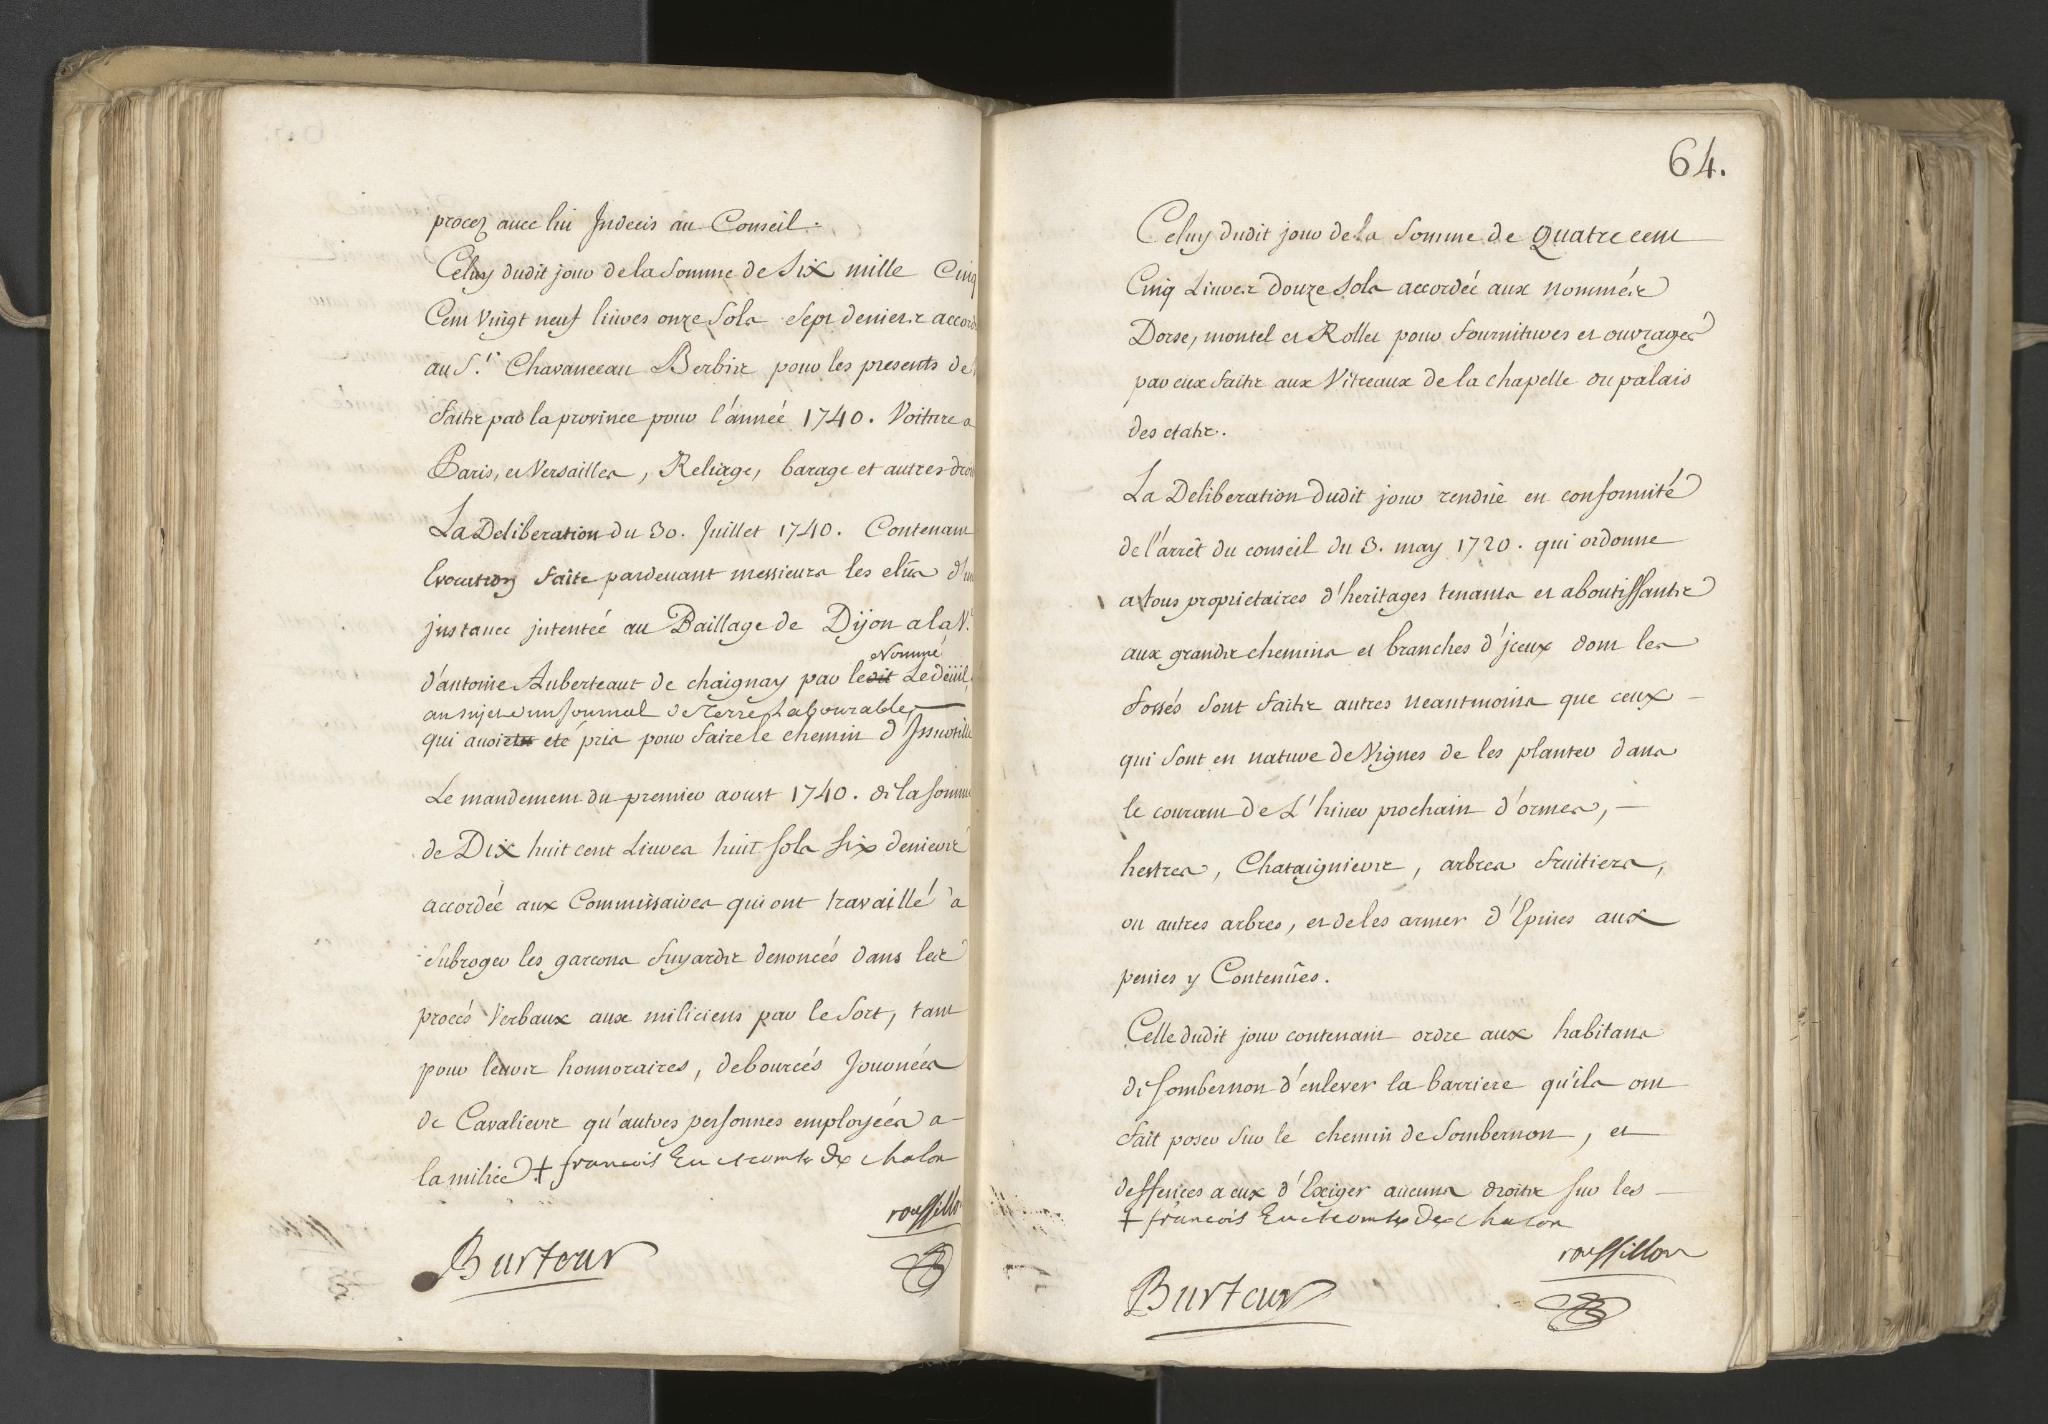 procez avec lui Indecis au Conseil.
Celuy dudit jour de la Somme de Six mille Cinq
Cent Vingt neuf livres onze Sols Sept deniers accord
au S.r Chavanceau Berbis pour les presents de
faits par la province pour l'année 1740. Voiture a
Paris, et Versailles, Reliage, barage et autres droi
La Deliberation du 30. Juillet 1740. Contenant
Evocation faite pardevant messieurs les elûs d'un
jnstance jntentéé au Baillage de Dijon a la
Nommé
d'antoine Auberteaut de chaignay par ledit Ledeüil
au sujet d'un Journal de Terre Labourable,
qui avoit eté pris pour faire le chemin d'Issurtille
Le mandement du premier aoust 1740. de la Somme
de Dix huit cent Livres huit Sols Six deniers
accordéé aux Commissaires qui ont travaillé a
subroger les garcons fuyards denoncés dans les
procés Verbaux aux miliciens par le Sort, tant
pour leurs honnoraires, debourcés Journéés
de Cavaliers qu'autres personnes employéés a
la milice. + francois Eu
chalon
roussillon
Burteur
64.
Celuy dudit jour de la Somme de Quatre cent
Cinq Livres douze Sols accordéé aux nommés
Dorse, montel et Rollet pour fournitures et ouvrages
par eux faits aux Vitreaux de la chapelle du palais
des etats.
La Deliberation dudit jour rendüe en conformité
de l'arrêt du conseil du 3. may 1720. qui ordonne
a tous proprietaires d'heritages tenants et aboutissants
aux grands chemins et branches d'jceux dont les
fossés sont faits autres neantmoins que ceux
qui sont en nature de Vignes de les planter dans
le courant de L'hiver prochain d'ormes,
hestres, Chataigniers, arbres fruitiers,
ou autres arbres, et de les armer d'Epines aux
peines y Contenûes.
Celle dudit jour contenant ordre aux habitans
de Sombernon d'enlever la barriere qu'ils ont
fait poser sur le chemin de Sombernon, et
deffences a eux d'Exiger aucuns droits sur les
+ francois Eu
chalon
roussillon
Burteur